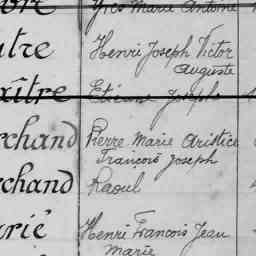 Yves Marie Antoine
Henri Joseph Victor
Auguste
aître Etienne Joseph
rchand Pierre Marie Aristice
François Joseph
rchand Raoul
arié Henri François Jean
Marie